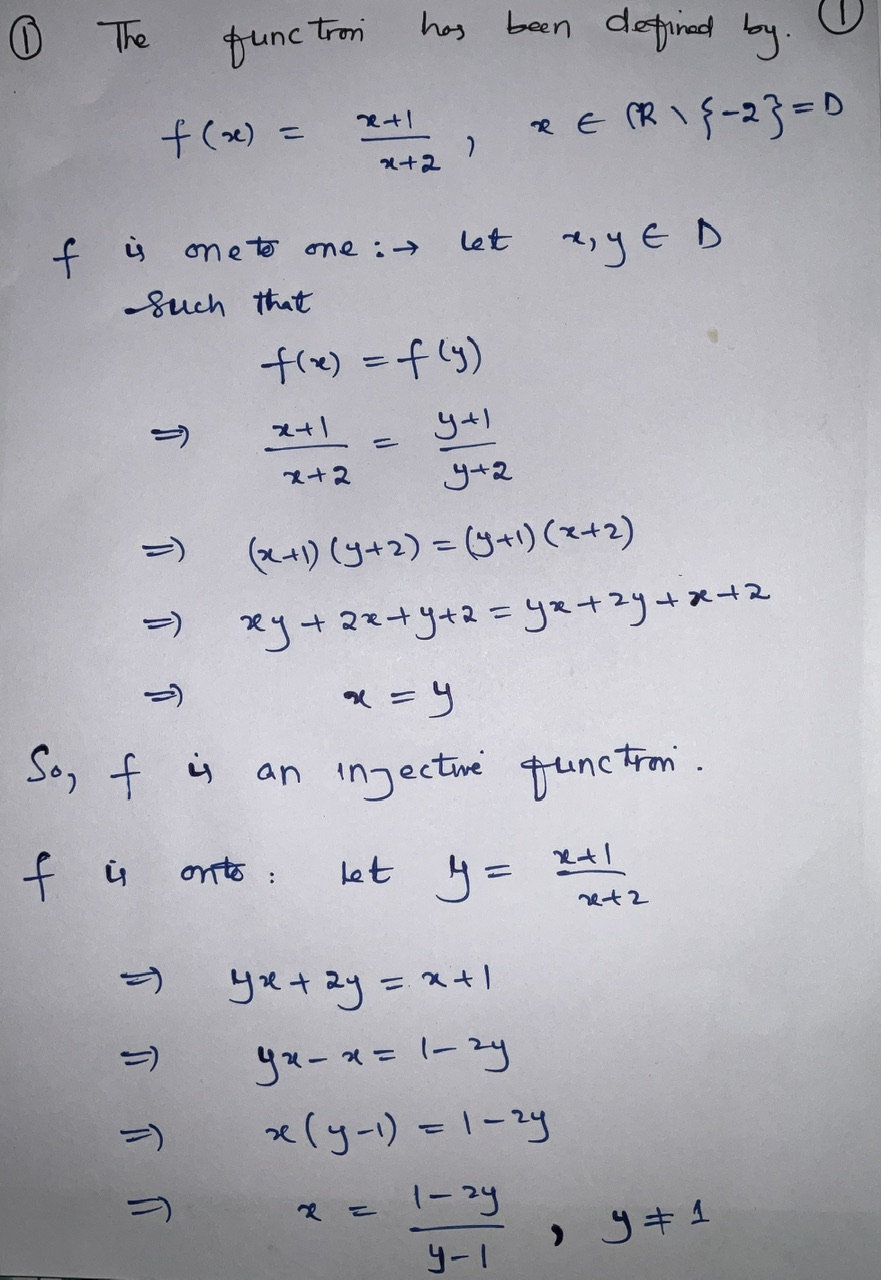 ① The function has been defined by. ①
f(x) = x+1/x+2 , x ∈ ℝ \ {-2} = D
f is one to one :→ let x, y ∈ D
such that
f(x) = f(y)
⇒ x+1/x+2 = y+1/y+2
⇒ (x+1)(y+2) = (y+1)(x+2)
⇒ xy + 2x + y + 2 = yx + 2y + x + 2
⇒ x = y
So, f is an injective function.
f is onto : let y = x+1/x+2
⇒ yx + 2y = x + 1
⇒ yx - x = 1 - 2y
⇒ x(y-1) = 1 - 2y
⇒ x = 1-2y/y-1 , y ≠ 1